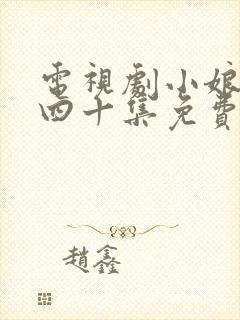 電視劇小娘
四十集免費
趙鑫